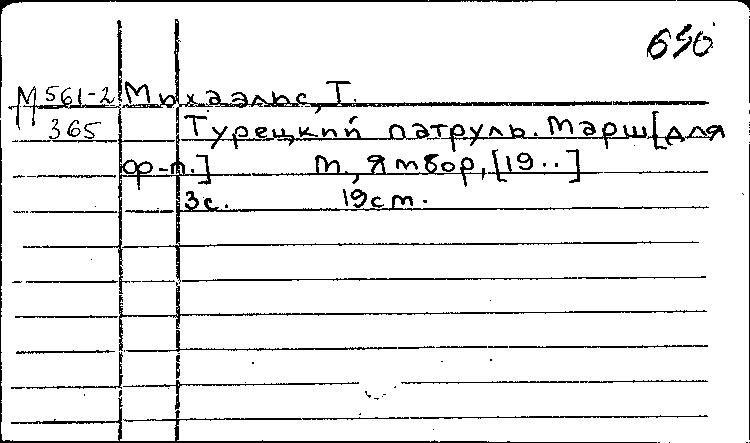 630
М 561-2 Михаэльс, Т.
365 Турецкий патруль. Марш [для
ф-п.] М., Ямбор, [19..]
3с. 19см.